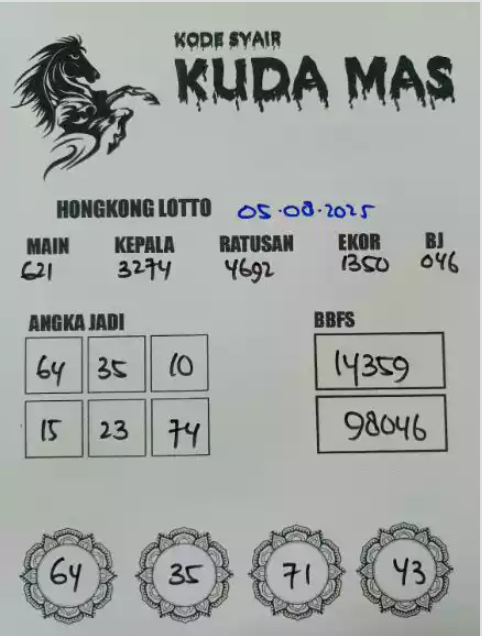 KODE SYAIR
KUDA MAS
HONGKONG LOTTO 05.08.2025
MAIN KEPALA RATUSAN EKOR BJ
621 3274 4692 1350 046
ANGKA JADI BBFS
64 35 10 14359
15 23 74 98046
64 35 71 43